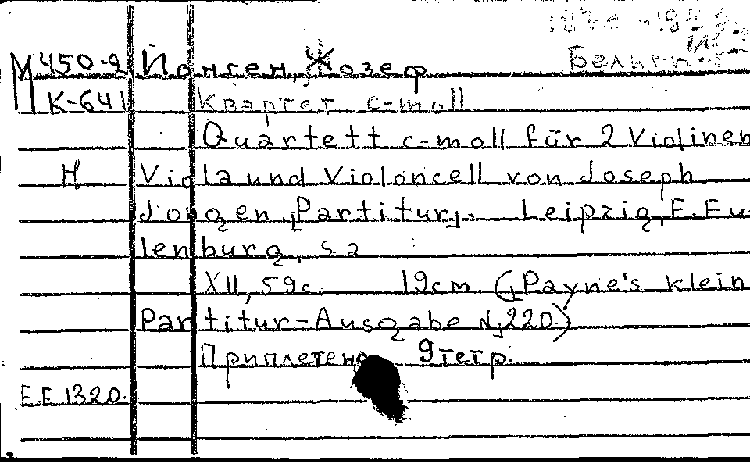 М 450-2 Йонген, Жозеф Бельгия
К-641 Квартет c-moll
Quartett c-moll für 2 Violinen
Н Viola und Violoncell von Joseph
Jongen, Partitur. Leipzig, E. Eu-
lenburg, s a
XII, 59 с. 19 cm (Payne's klein
Partitur-Ausgabe N, 220)
Приплетено 9 тетр.
E.E. 1320.